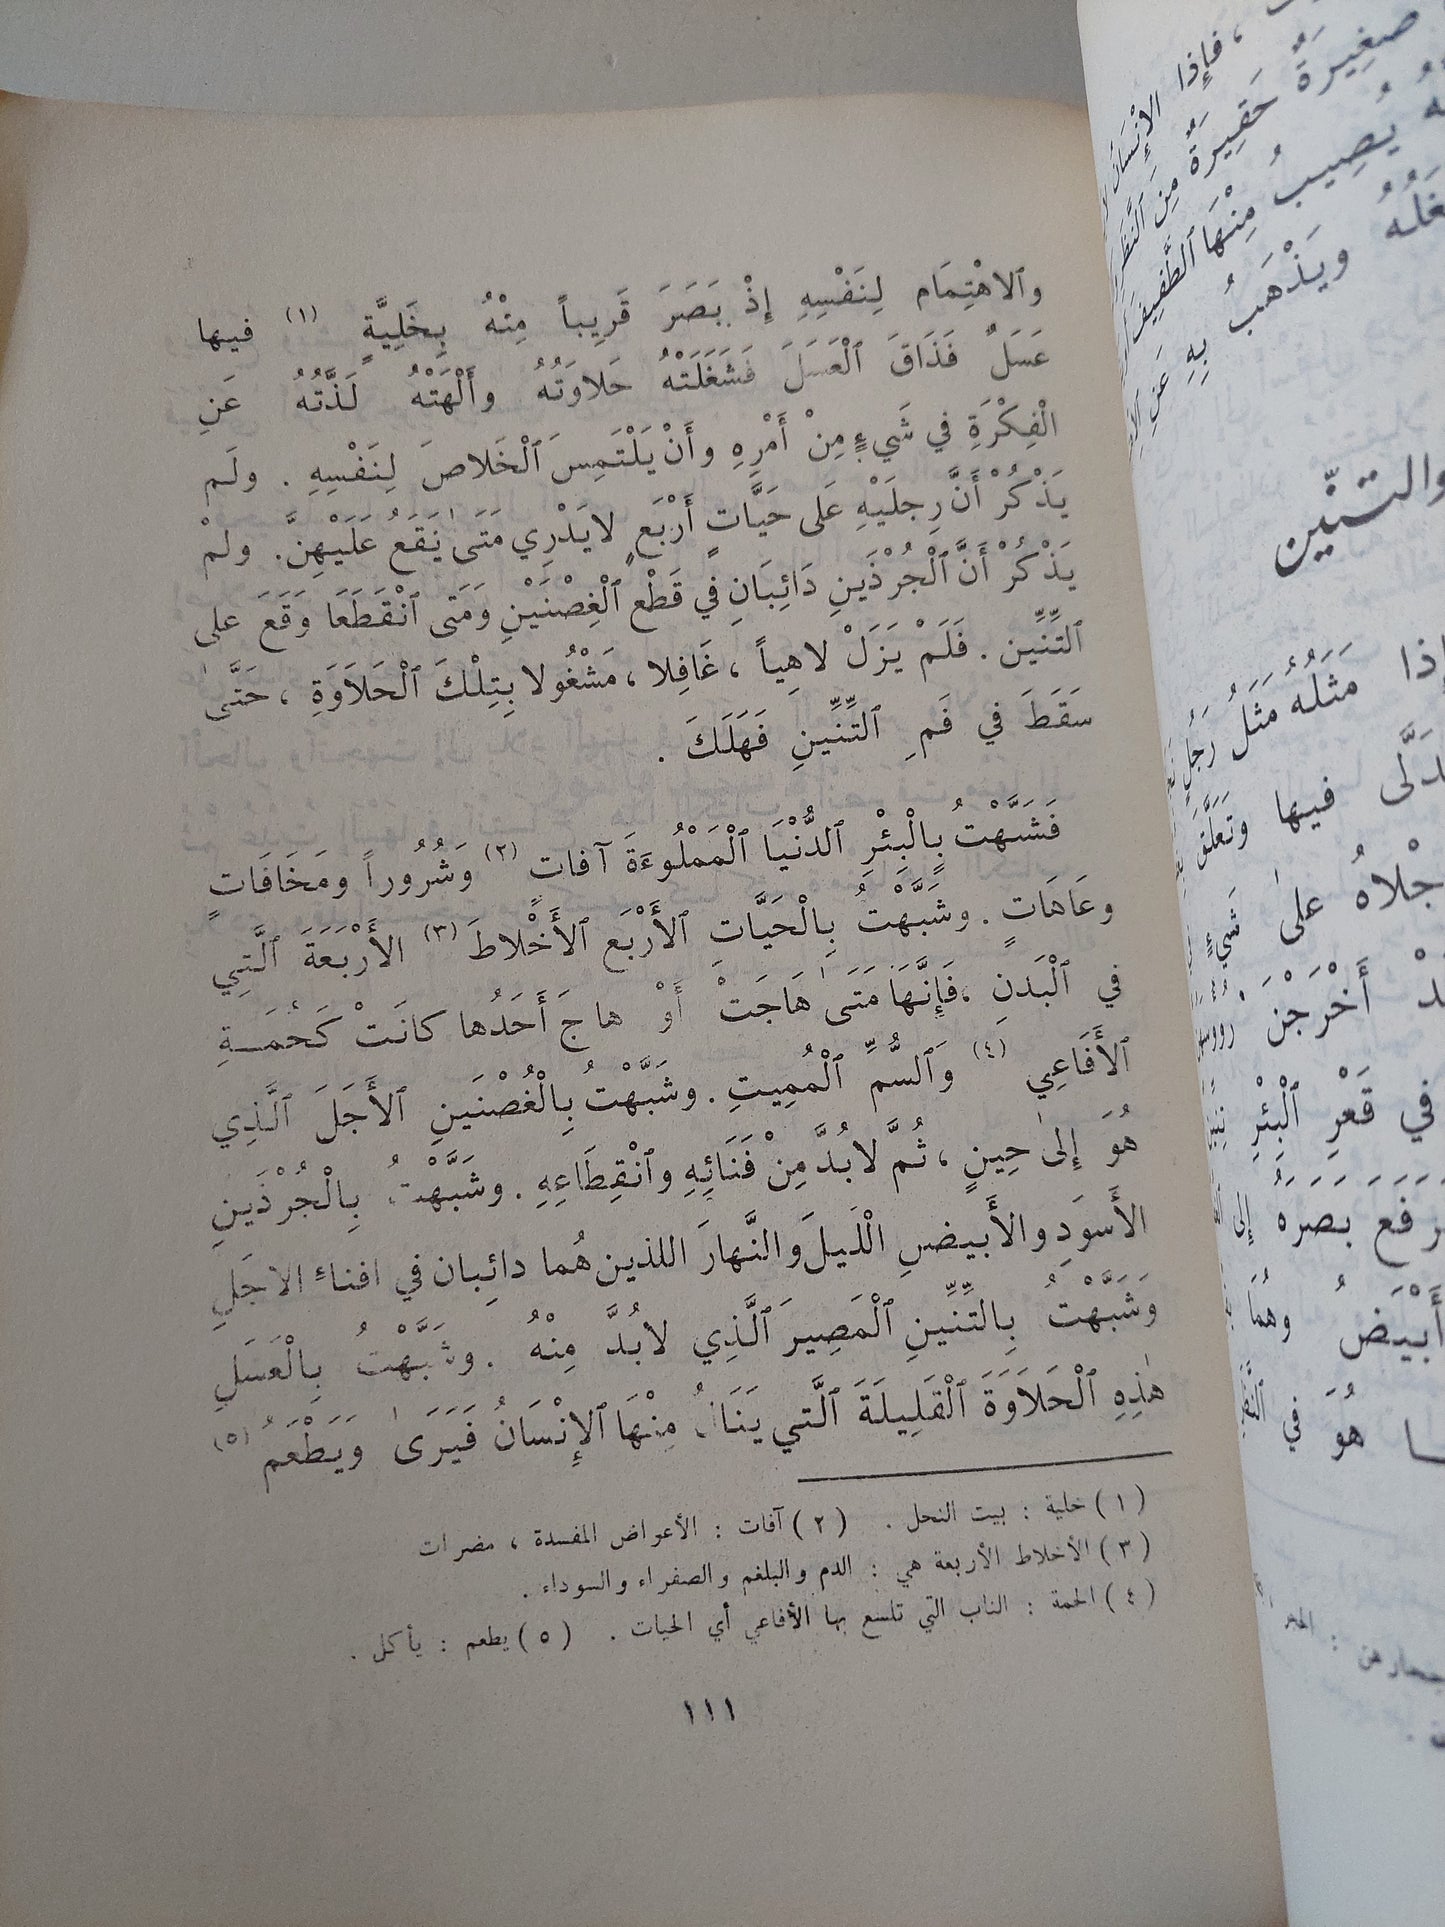 والاهْتِمَام لِنَفْسِهِ إِذْ بَصَرَ قَرِيباً مِنْهُ بِخَلِيَّةٍ (١) فيها
عَسَلٌ فَذَاقَ ٱلْعَسَلَ فَشَغَلَتْهُ حَلاوَتُهُ وأَلْهَتْهُ لَذَّتُهُ عَنِ
الْفِكْرَةِ في شَيءٍ مِنْ أَمْرِهِ وأَنْ يَلْتَمِسَ ٱلْخَلاصَ لِنَفْسِهِ . ولَم
يَذْكُرْ أَنَّ رِجلَيْهِ عَلى حَيَّاتٍ أَرْبَعٍ لايَدْرِي مَتَىٰ يَقَعُ عَلَيْهِنَّ. ولمْ
يَذْكُرْ أَنَّ ٱلْجُرْذَينِ دَائِبَانِ في قَطْعِ ٱلْغِصْنَيْنِ وَمَتى ٱنْقَطَعَا وَقَعَ على
ٱلتِّنِّين . فَلَمْ يَزَلْ لاهِياً ، غَافِلا ، مَشْغُولا بِتِلْكَ ٱلْحَلاَوَةِ ، حَتَّىٰ
سَقَطَ في فَمِ ٱلتِّنِّينِ فَهَلَكَ .
فَشَبَّهْتُ بِٱلْبِئْرِ ٱلدُّنْيَا ٱلْمَمْلُوءَةَ آفاتٍ (٢) وَشُرُوراً ومَخَافَاتٍ
وعَاهَاتٍ . وشَبَّهْتُ بِالْحَيَّاتِ ٱلأَرْبَعِ ٱلأَخْلاطَ (٣) الأَرْبَعَةَ ٱلَّتِي
في ٱلْبَدَنِ ،فَإِنَّهَا مَتَىٰ هَاجَتْ أَوْ هاجَ أَحَدُها كانَتْ كَحُمَـةِ
ٱلأَفَاعِي (٤) وَٱلسُّمِّ ٱلْمُمِيتِ . وشَبَّهْتُ بِالْغُصْنَينِ ٱلأَجَلَ ٱلَّذِي
هُوَ إِلىٰ حِينٍ ، ثُمَّ لابُدَّ مِنْ فَنَائِهِ وٱنْقِطَاعِهِ . وشَبَّهْتُ بِالْجُرْذَينِ
الأَسوَدِ والأَبيضِ الْلَيلَ والنَّهارَ اللذين هُما دائِبان في افناءِ الاجَلِ
وَشَبَّهْتُ بِالتِّنِّينِ ٱلْمَصِيرَ ٱلَّذِي لابُدَّ مِنْهُ . وشَبَّهْتُ بِالْعَسَلِ
هٰذِهِ ٱلْحَلاَوَةَ ٱلْقَلِيلَةَ ٱلَّتي يَنَالُ مِنْهَا ٱلإِنْسَانُ فَيَرَىٰ وَيَطْعَمُ (٥)
( ١ ) خلية : بيت النحل . ( ٢ ) آفات : الأعواض المفسدة ، مضرات
( ٣ ) الأخلاط الأربعة هي : الدم والبلغم والصفراء والسوداء .
( ٤ ) الحمة : الناب التي تلسع بها الأفاعي أي الحيات . ( ٥ ) يطعم : يأكل .
١١١
، فإِذا الإِنْسَانُ
صَغِيرَةٌ حَقِيرَةٌ مِنَ ٱلنَّظَرِ
يُصِيبُ مِنْهَا ٱلطَّفِيفَ
ويَذْهَبُ بِهِ عَنِ
والتنّين
مَثَلُهُ مَثَلُ رَجُلٍ
فيها وتَعَلَّقَ
علىٰ شَيْءٍ
أَخْرَجْنَ رُؤُوسَهُنَّ
في قَعْرِ ٱلْبِئْرِ
بَصَرَهُ إِلى
أَبْيَضُ وهُمَا
هُوَ في